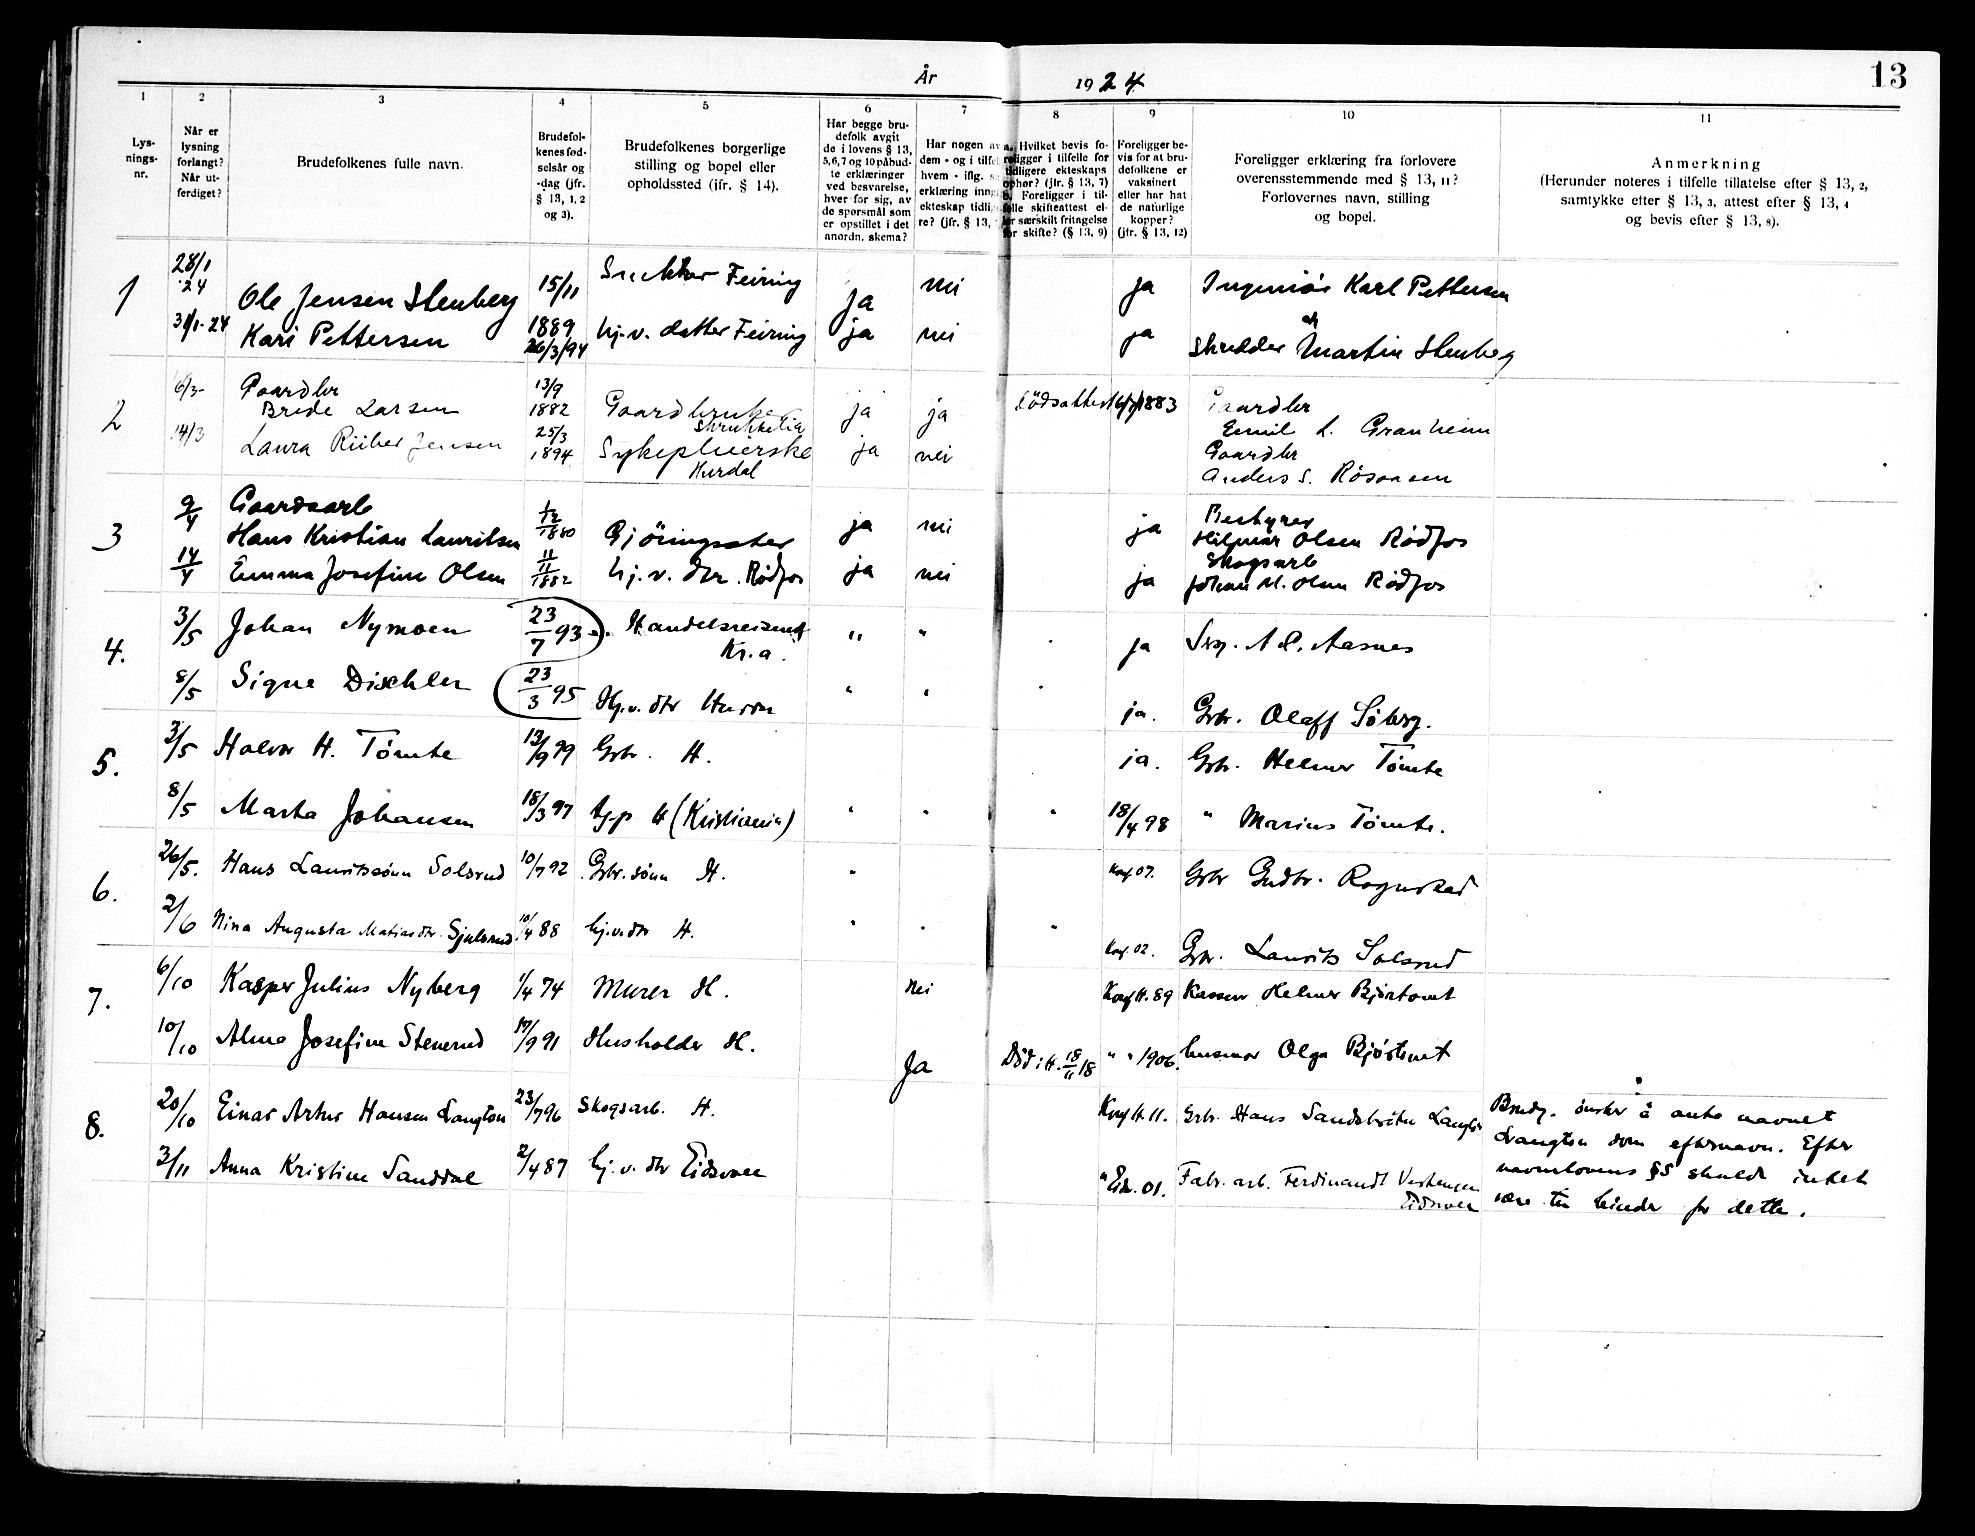 År 1924
13
1 2 3 4 5 6 7 8 9 10 11
Lys-
nings-
nr.
Når er
lysning
forlangt?
Når ut-
ferdiget?
Brudefolkenes fulle navn.
Brudefol-
kenes fød-
selsår og
-dag (jfr.
§ 13, 1, 2
og 3).
Brudefolkenes borgerlige
stilling og bopel eller
opholdssted (ifr. § 14).
Har begge bru-
defolk avgit
de i lovens § 13,
5, 6, 7 og 10 påbud-
te erklæringer
ved besvarelse,
hver for sig, av
de spørsmål som
er opstillet i det
anordn. skema?
Har nogen av
dem - og i tilfel
hvem - iflg.
erklæring inng
ekteskap tidli
re? (jfr. § 13,
a. Hvilket bevis fo-
religger i tilfelle for
tidligere ekteskaps
ophør? (jfr. § 13, 7)
b. Foreligger i til-
felle skifteattest el-
ler særskilt fritagelse
for skifte? (§ 13, 9)
Foreligger be-
vis for at bru-
defolkene er
vaksinert
eller har hat
de naturlige
kopper?
(jfr. § 13, 12)
Foreligger erklæring fra forlovere
overensstemmende med § 13, 11?
Forlovernes navn, stilling
og bopel.
Anmerkning
(Herunder noteres i tilfelle tillatelse efter § 13, 2,
samtykke efter § 13, 3, attest efter § 13, 4
og bevis efter § 13, 8).
1 28/1 24 Ole Jensen Stenberg 15/11 1889 Feiring ja nei ja Ingeniör Karl Pettersen
31/1-24 Kari Pettersen 26/3/94 hj.v. datter Feiring ja nei ja Skredder Martin Stenberg
2 6/3- Gaardbr
Brede Larsen 13/9 1882 Gaardbruker ja ja Dödsattest 1883 Gaardbr
Skrukkelia
Emil L. Granheim
14/3 Laura Riiber Jensen 25/3 1894 Sykepleierske ja nei Gaardbr
Hurdal
Anders S. Røsaasen
3 9/4 Gaardsarb
Hans Kristian Lauritsen 1/12 1880 Gjöringsster ja nei ja Bestyrer
Hilmar Olsen Rödfos
14/4 Emma Josefine Olsen 11/11 1882 hj.v. dtr. Rödfos ja nei ja Skogsarb
Johan M. Olsen Rödfos
4. 3/5 Johan Nymoen 23/7 93. Handelsreisende " " ja A. L. Aasnes
Kr.a.
8/5 Signe Dischler 23/3 95 Hj.v. dtr " " ja. Gbr. Olaff Söberg.
5. 3/5 Halvor H. Tömte 13/9 99 Gbr. H. ja. Gbr. Helmer Tömte
8/5 Marta Johansen 18/3 97 H (Kristiania) " " " 18/4 98 " Marius Tömte.
6. 26/5. Hans Lauritssönn Solsrud 10/7 92 Gbr. sönn H. " Konf 07. Gbr Gudbr. Rognstad
2/6 Nina Augusta Matiasdtr. Sjulsrud. 10/4 88 hj.v.dtr H. " " " Konf. 02. Gbr. Laurits Solsrud
7. 6/10 Kasper Julius Nyberg 1/4 74 Murer H. Nei Konf H. 89 Helmer Björtomt
10/10 Alma Josefine Stenerud 17/9 91 Husholder H. Ja Död i H. 18/11 18 " " 1906. husmor Olga Björtomt
8. 20/10 Einar Artur Hansen Langton 23/7 96 Skogsarb. H. Konf H. 11. Gbr. Hans Langton
3/11 Anna Kristine Sanddal 2/4 87 hj.v. dtr Eidsvoll " Eidv. 01. Fabr. arb. Ferdinandt
Eidsvoll
Brudg. önsker å anta navnet
Langton som efternavn. Efter
navnelovens §5 skulde intet
være til hinder for dette.